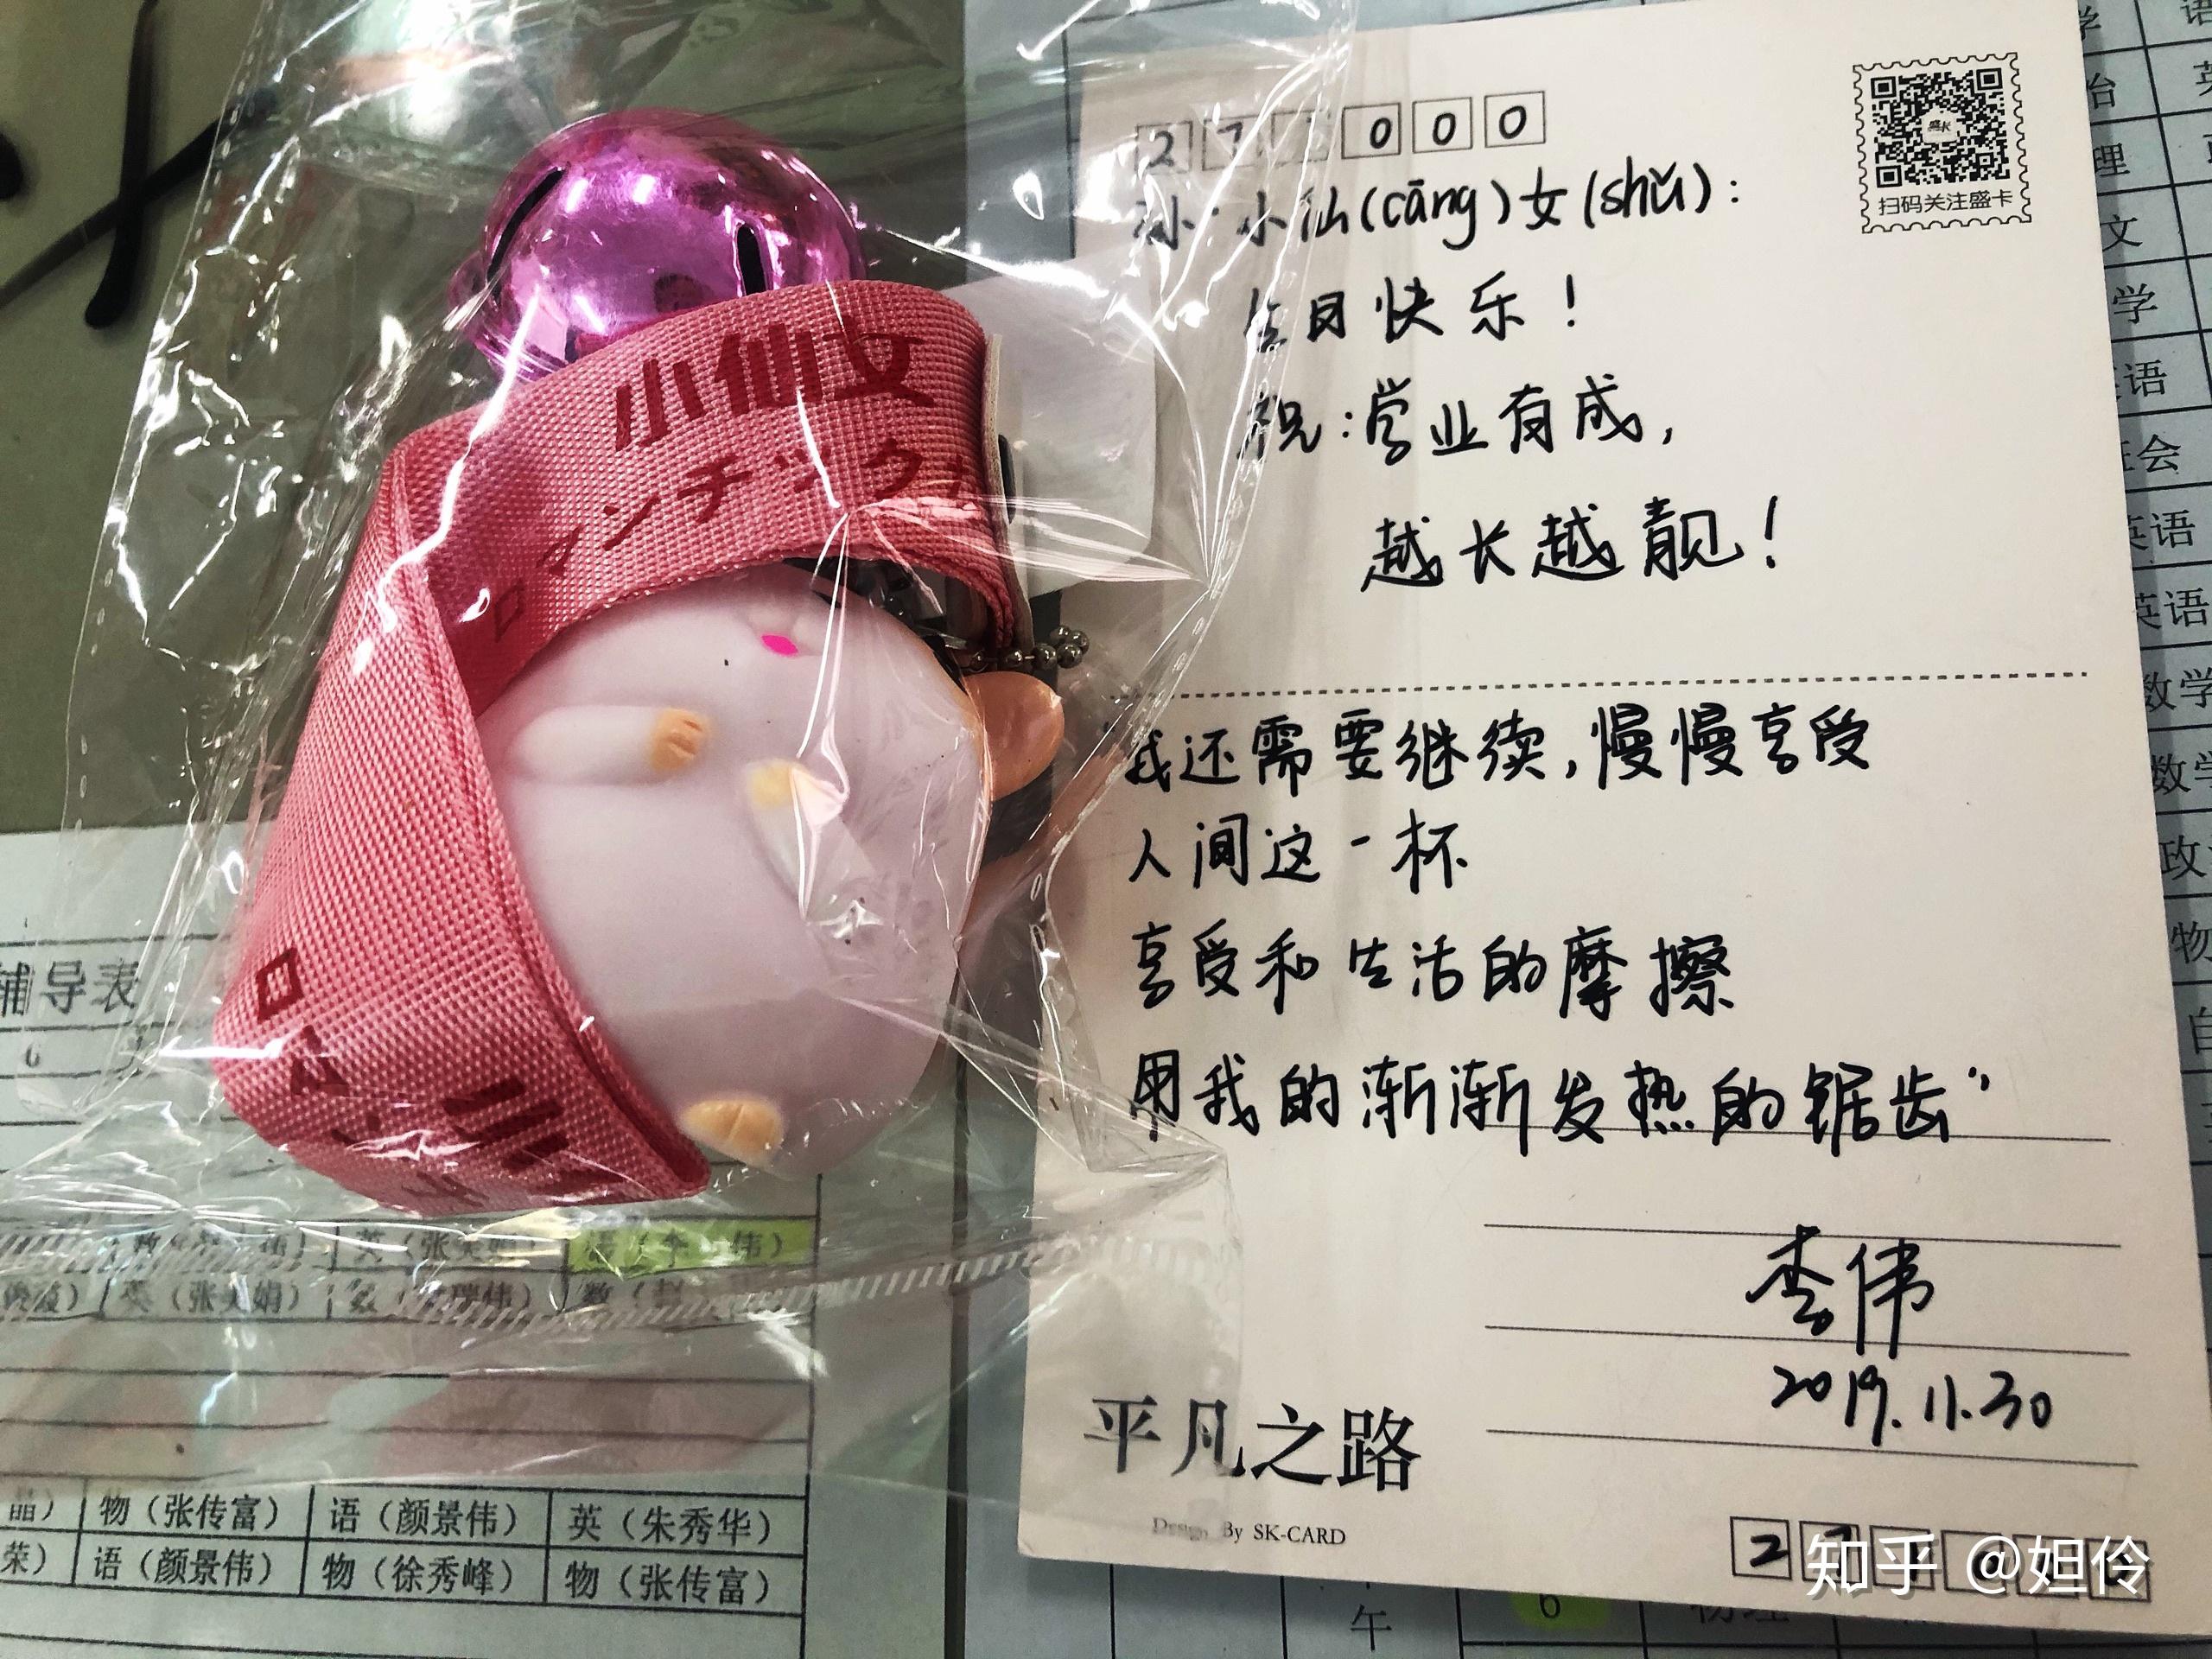 小仙女
ロマンチック
000
扫码关注盛卡
孙小仙(cāng)女(shǔ):
生日快乐!
祝:学业有成,
越长越靓!
"我还需要继续,慢慢享受
人间这一杯
享受和生活的摩擦
用我的渐渐发热的锯齿"
李伟
2019.11.30
平凡之路
Design By SK-CARD
辅导表
6
英(张美娟)
英(张美娟)
晶) 物(张传富) 语(颜景伟) 英(朱秀华)
荣) 语(颜景伟) 物(徐秀峰) 物(张传富)
学
理
文
学
语
会
英语
英语
数学
数学
午
6
知乎 @妲伶